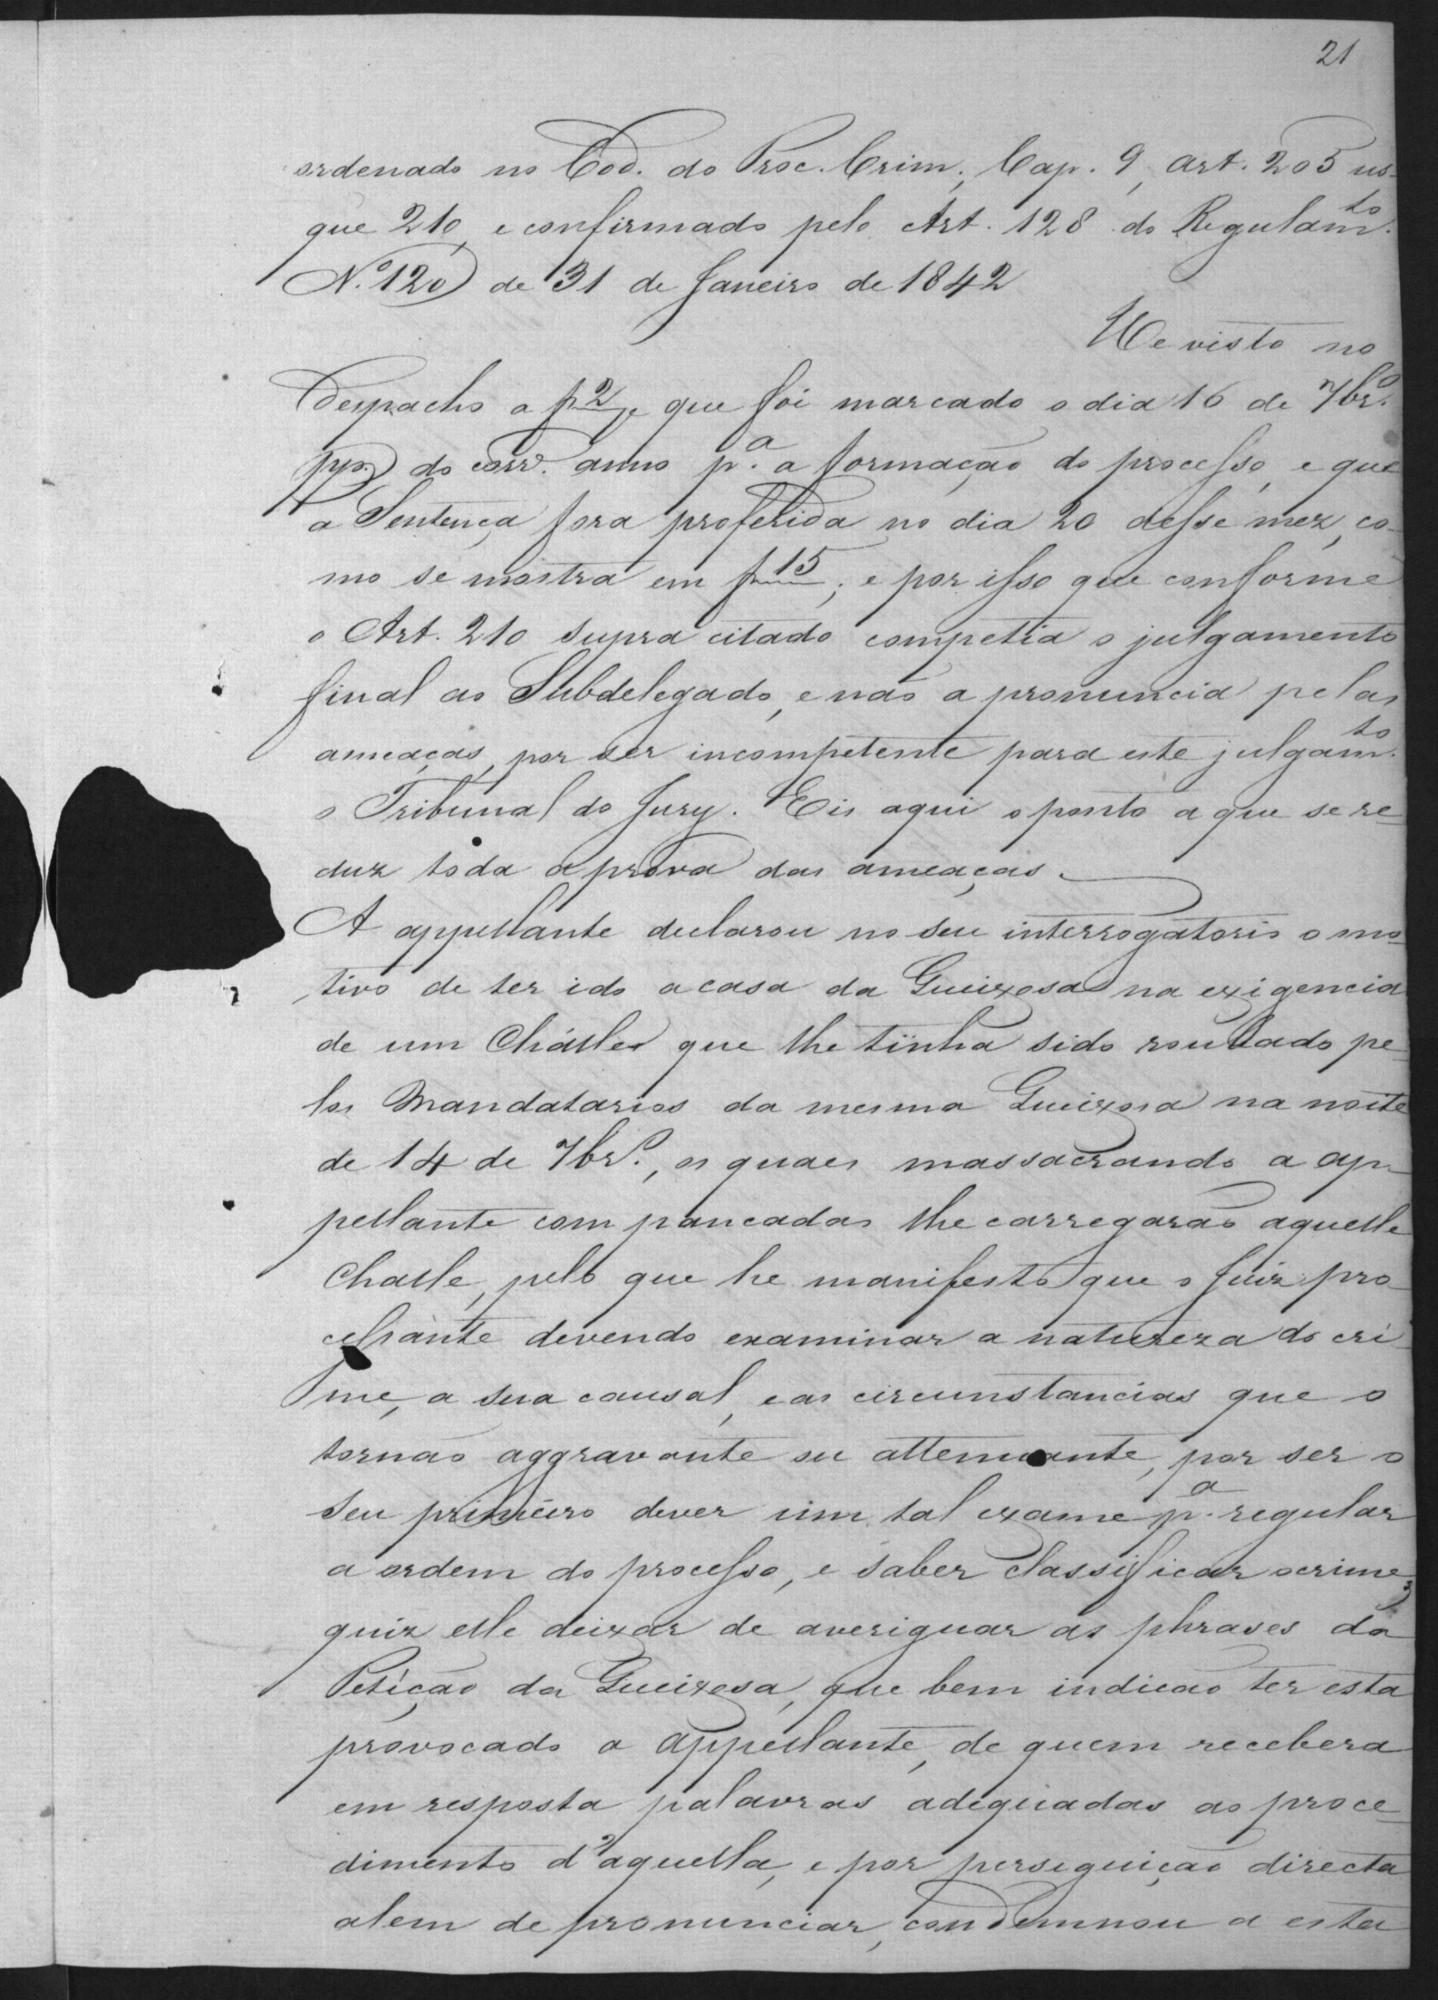 21
ordenado no Cod. do Proc. Crim., Cap. 9, Art. 205 us-
que 210, e confirmado pelo Art. 128 do Regulam.to
N.º 120 de 31 de Janeiro de 1842
He visto no
Despacho a f 2 e que foi marcado o dia 16 de 7br.º
pp. do corr.e anno p.a a formação do processo, e que
a Sentença fora proferida no dia 20 desse mez, co-
mo se mostra em f 15; e por isso que conforme
o Art. 210 supra citado competia o julgamento
final ao Subdelegado, e não a pronuncia pelas
ameaças, por ser incompetente para este julgam.to
o Tribunal do Jury. Eis aqui o ponto a que se re-
duz toda a prova das ameaças.
A appellante declarou no seu interrogatorio o mo-
tivo de ter ido a casa da Queixosa na exigencia
de um Chásle que lhe tinha sido roubado pe-
los Mandatarios da mesma Queixosa na noite
de 14 de 7br.º, os quaes massacrando a ap-
pellante com pancadas lhe carregarão aquelle
Challe, pelo que he manifesto que o Juiz pro-
cessante devendo examinar a natureza do cri-
me, a sua causal, e as circunstancias que o
tornão aggravante ou attenuante, por ser o
seu primeiro dever um tal exame p.a regular
a ordem do processo, e saber classificar o crime,
quiz elle deixar de averiguar as phrases da
Petição da Queixosa, que bem indicão ter esta
provocado a appellante, de quem recebera
em resposta palavras adequadas ao proce-
dimento d'aquella, e por perseguição directa
alem de pronunciar, condemnou a esta